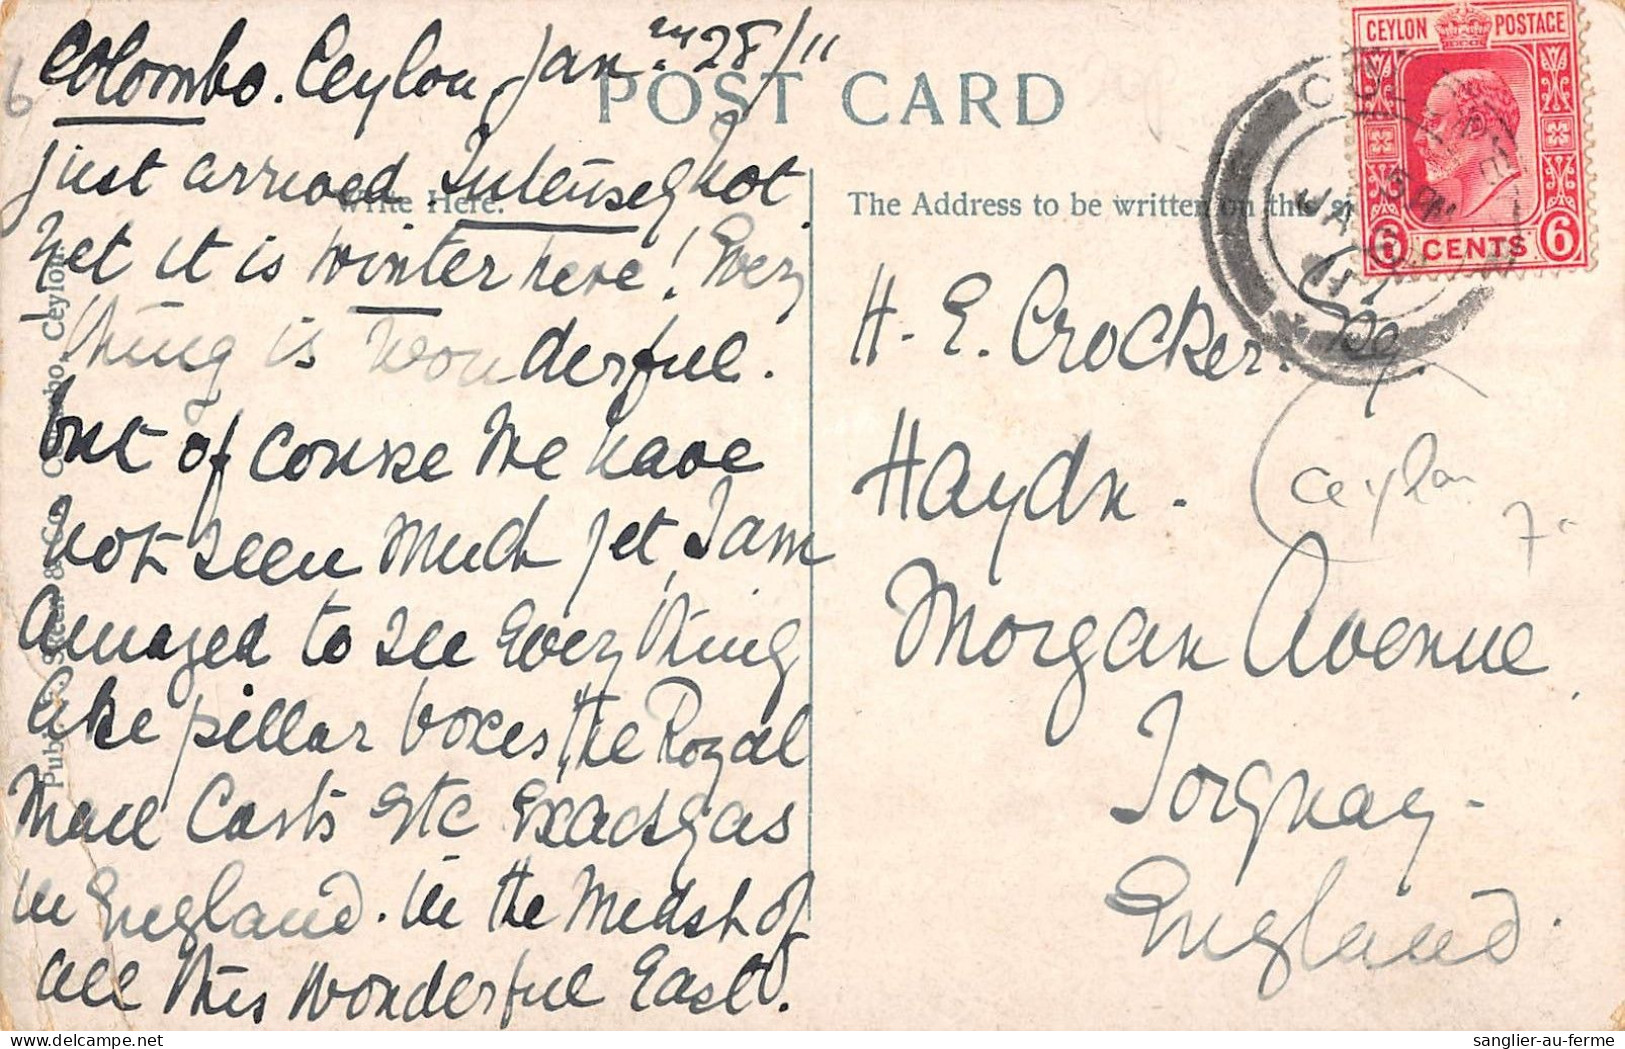 6
Colombo. Ceylon Jan.ry 28/11
POST CARD
CEYLON POSTAGE
6 CENTS 6
just arrived. Intensely hot
Write Here.
The Address to be written on this
yet it is winter here! Every
thing is wonderful.
but of course we have
not seen much yet, I am
amazed to see Every thing
like pillar boxes, the Royal
Mail Carts etc Exactly as
in England. in the Midst of
all this wonderful East.
H. E. Crocker. Esq.
Haydn.
Morgan Avenue
Torquay-
England.
Ceylon
7
Colombo, Ceylon.
sanglier-au-ferme